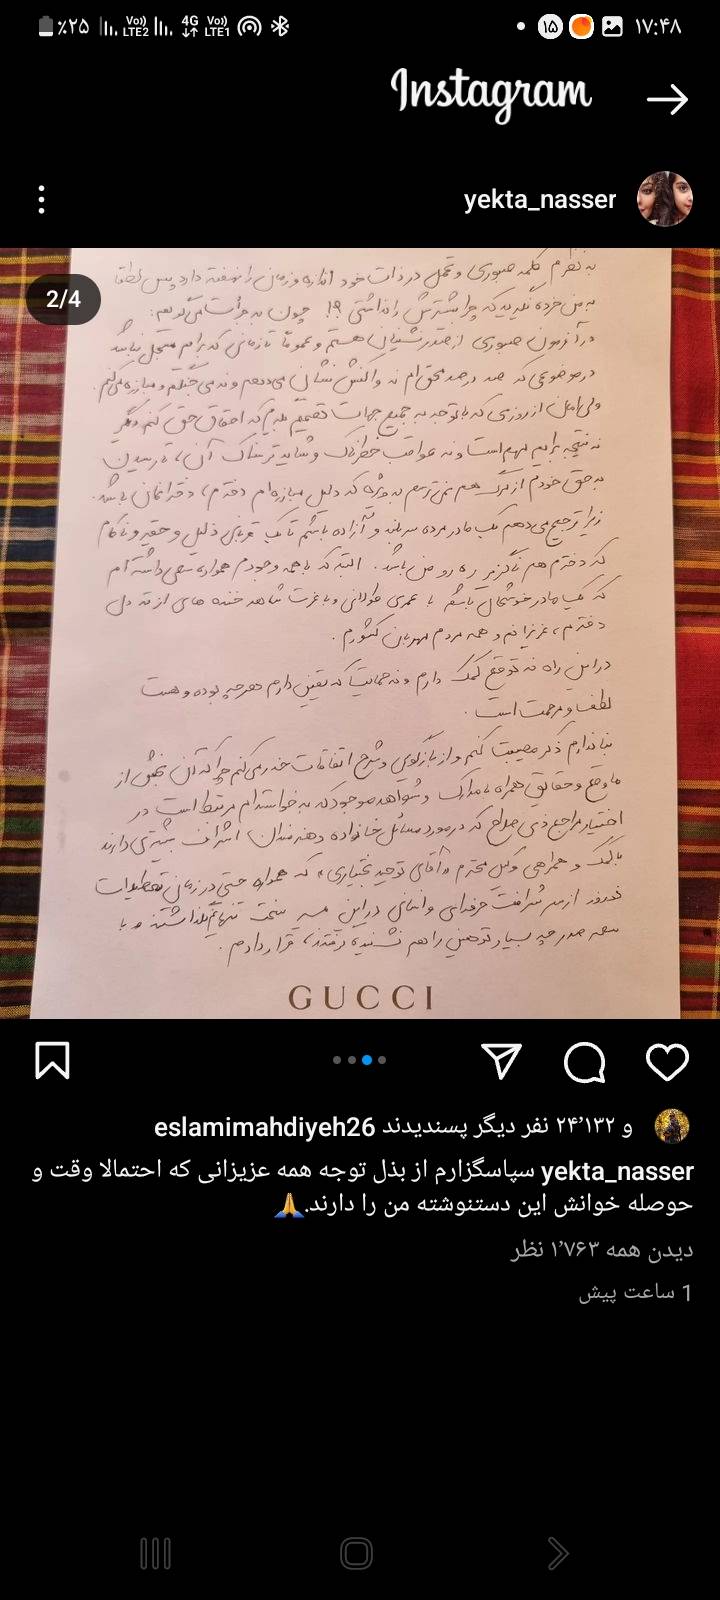 ٪۲۵ Vo)) LTE2 4G Vo)) LTE1 ۱۵ ۱۷:۴۸
Instagram
yekta_nasser
2/4
به نظرم کلمه صبوری و تحمل در ذات خود اندازه و زمان را نهفته دارد پس لطفا
به من خرده نگیرید که چرا بیشترش را نداشتی ؟! چون به جرأت می‌گویم:
در آزمون صبوری از صدرنشینان هستم و عموماً تا زمانی که برایم مسجل نباشد
در موضوعی که صد در صد محق‌ام نه واکنش نشان می‌دهم و نه می‌جنگم و مبارزه می‌کنم
ولی امان از روزی که با توجه به جمیع جهات تصمیم بگیرم که احقاق حق کنم دیگر
نه نتیجه برایم مهم است و نه عواقب خطرناک و شاید ترسناک آن، تا رسیدن
به حق خودم از مرگ هم نمی‌ترسم به ویژه که دلیل مبارزه‌ام دخترم، دخترانمان باشد.
زیرا ترجیح می‌دهم یک مادر مرده سربلند و آزاده باشم تا یک قربانی ذلیل و حقیر و ناکام
که دخترم هم ناگزیر ره رو من باشد. البته که با همه وجودم همواره سعی داشته ام
که یک مادر خوشحال باشم با عمری طولانی و با عزت شاهد خنده های از ته دل
دخترم، عزیزانم و همه مردم مهربان کشورم.
در این راه نه توقع کمک دارم و نه حمایت که یقین دارم هر چه بوده و هست
لطف و مرحمت است.
بنا ندارم ذکر مصیبت کنم و از بازگویی و شرح اتفاقات حذر می‌کنم چرا که آن بخش از
ماوقع و حقایق همراه با مدارک و شواهد موجود که به خواسته‌ام مرتبط است در
اختیار مراجع ذی صلاح که در مورد مسائل خانواده و هنرمندان اشراف بیشتری دارند
با کمک و همراهی وکیل محترم «آقای توحید بختیاری» که همواره حتی در زمان تعطیلات
نوروز از سر شرافت حرفه‌ای و انسانی در این مسیر سخت تنهایم نگذاشتند و با
سعه صدر چه بسیار توهین را هم نشنیده گرفتند، قرار دادم.
GUCCI
eslamimahdiyeh26 و ۲۴٬۱۳۲ نفر دیگر پسندیدند
yekta_nasser سپاسگزارم از بذل توجه همه عزیزانی که احتمالا وقت و
حوصله خوانش این دستنوشته من را دارند.🙏
دیدن همه ۱٬۷۶۳ نظر
1 ساعت پیش